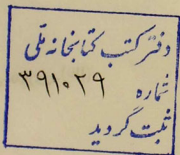 دفتر کتب کتابخانه ملی
شماره ۳۹۱۰۲۹
ثبت گردید